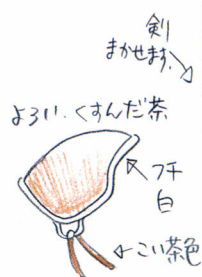 剣
まかせます。
よろい. くすんだ茶
フチ
白
こい茶色